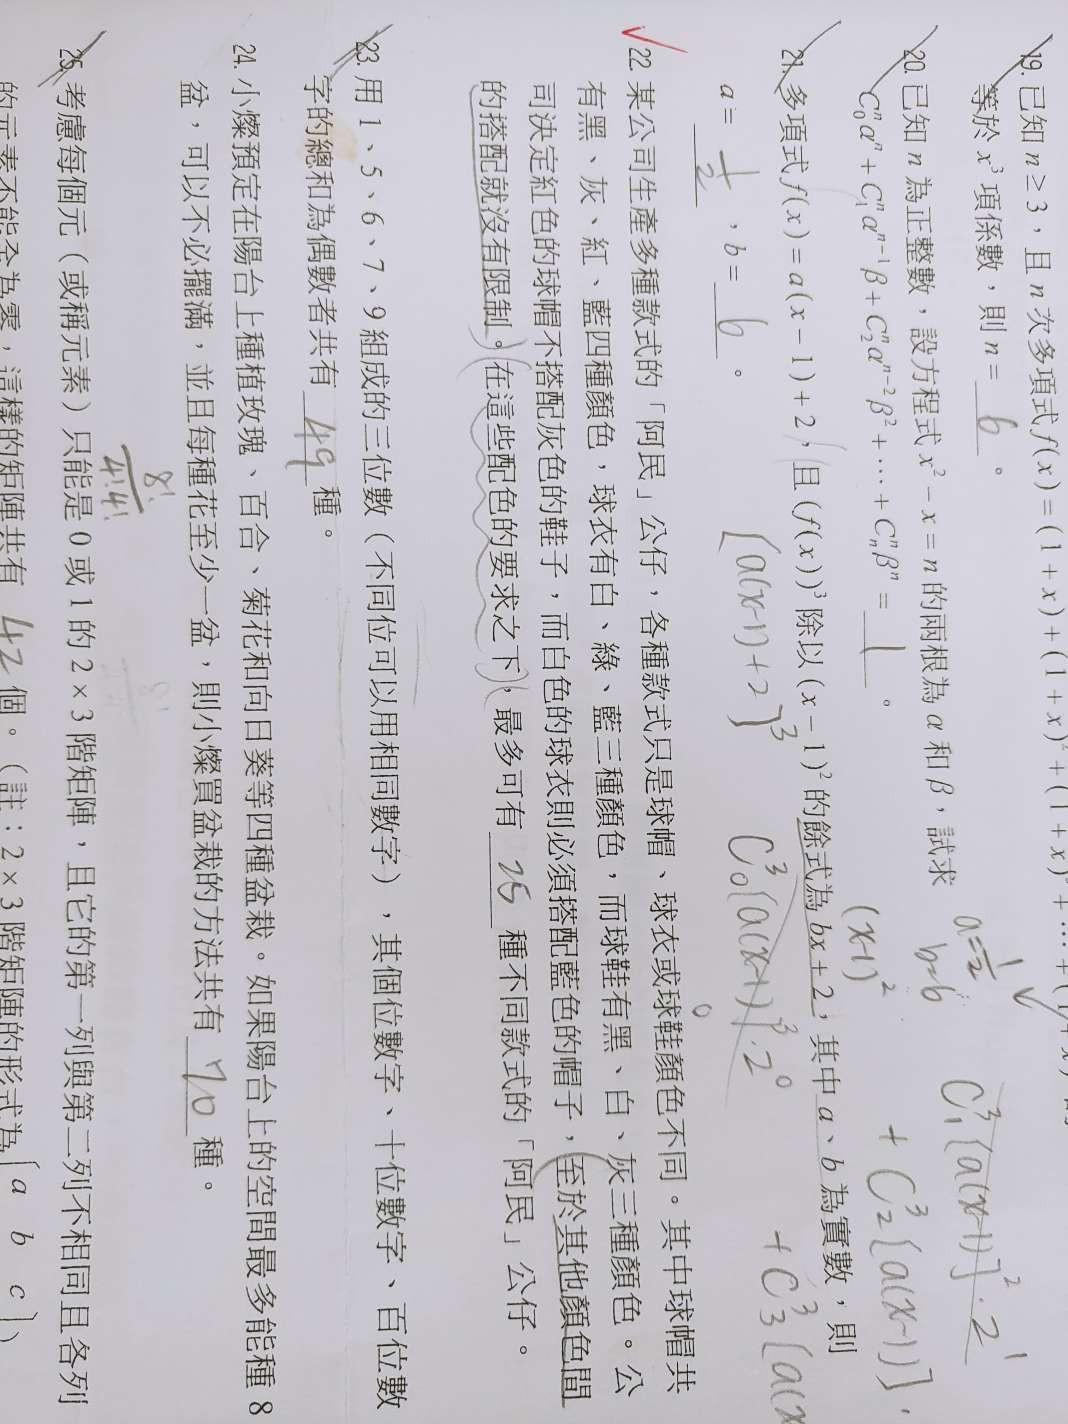 19. 已知 n ≥ 3，且 n 次多項式 f(x) = (1 + x) + (1 + x)² + (1 + x)³ + … + (1 + x)
等於 x³ 項係數，則 n = 6 。
20. 已知 n 為正整數，設方程式 x² − x = n 的兩根為 α 和 β，試求
C₀ⁿαⁿ + C₁ⁿαⁿ⁻¹β + C₂ⁿαⁿ⁻²β² + … + Cₙⁿβⁿ = 1 。
a = 1/2
b = 6
C₁³[a(x-1)]²·2¹
(x-1)²
+ C₂³[a(x-1)]
21. 多項式 f(x) = a(x − 1) + 2，且 (f(x))³ 除以 (x − 1)² 的餘式為 bx + 2，其中 a、b 為實數，則
a = 1/2 ，b = 6 。
[a(x-1)+2]³
C₀³[a(x-1)]³·2⁰
+ C₃³[a(x
22. 某公司生產多種款式的「阿民」公仔，各種款式只是球帽、球衣或球鞋顏色不同。其中球帽共
有黑、灰、紅、藍四種顏色，球衣有白、綠、藍三種顏色，而球鞋有黑、白、灰三種顏色。公
司決定紅色的球帽不搭配灰色的鞋子，而白色的球衣則必須搭配藍色的帽子，至於其他顏色間
的搭配就沒有限制。在這些配色的要求之下，最多可有 25 種不同款式的「阿民」公仔。
23. 用 1、5、6、7、9 組成的三位數（不同位可以用相同數字），其個位數字、十位數字、百位數
字的總和為偶數者共有 49 種。
24. 小燦預定在陽台上種植玫瑰、百合、菊花和向日葵等四種盆栽。如果陽台上的空間最多能種 8
盆，可以不必擺滿，並且每種花至少一盆，則小燦買盆栽的方法共有 70 種。
8!
4!4!
25. 考慮每個元（或稱元素）只能是 0 或 1 的 2 × 3 階矩陣，且它的第一列與第二列不相同且各列
的元素不能全為零，這樣的矩陣共有 42 個。（註：2 × 3 階矩陣的形式為 [a b c]）